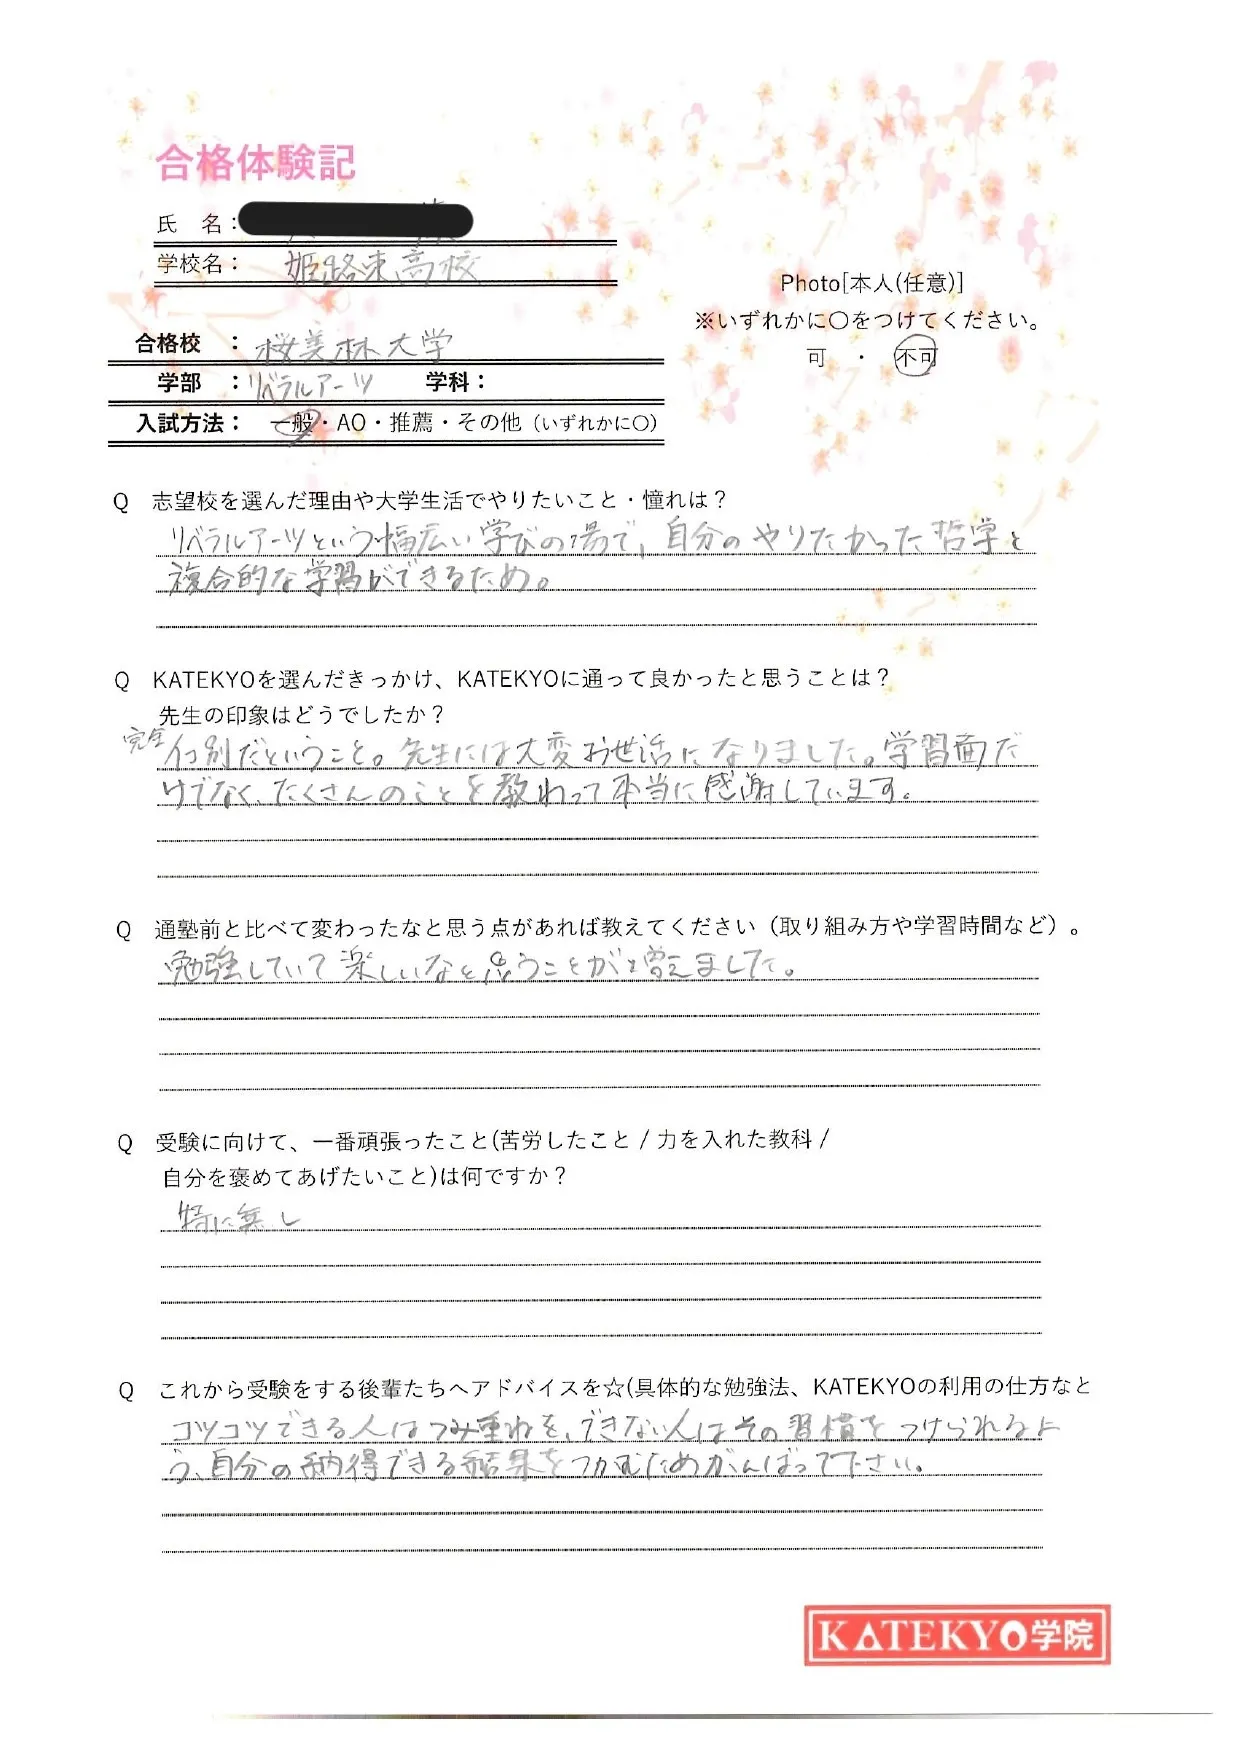 合格体験記
氏 名：
学校名： 姫路東高校
Photo[本人(任意)]
※いずれかに〇をつけてください。
可 ・ 不可
合格校 ： 桜美林大学
学部 ：リベラルアーツ 学科：
入試方法： 一般・AO・推薦・その他（いずれかに〇）
Q 志望校を選んだ理由や大学生活でやりたいこと・憧れは？
リベラルアーツという幅広い学びの場で、自分のやりたかった哲学と
複合的な学習ができるため。
Q KATEKYOを選んだきっかけ、KATEKYOに通って良かったと思うことは？
先生の印象はどうでしたか？
完全個別だということ。先生には大変お世話になりました。学習面だ
けでなく、たくさんのことを教わって本当に感謝しています。
Q 通塾前と比べて変わったなと思う点があれば教えてください（取り組み方や学習時間など）。
勉強していて楽しいなと思うことが増えました。
Q 受験に向けて、一番頑張ったこと(苦労したこと / 力を入れた教科 /
自分を褒めてあげたいこと)は何ですか？
特に無し
Q これから受験をする後輩たちへアドバイスを☆(具体的な勉強法、KATEKYOの利用の仕方なと
コツコツできる人はつみ重ねを、できない人はその習慣をつけられるよ
う、自分の納得できる結果をつかむためがんばって下さい。
KATEKYO学院